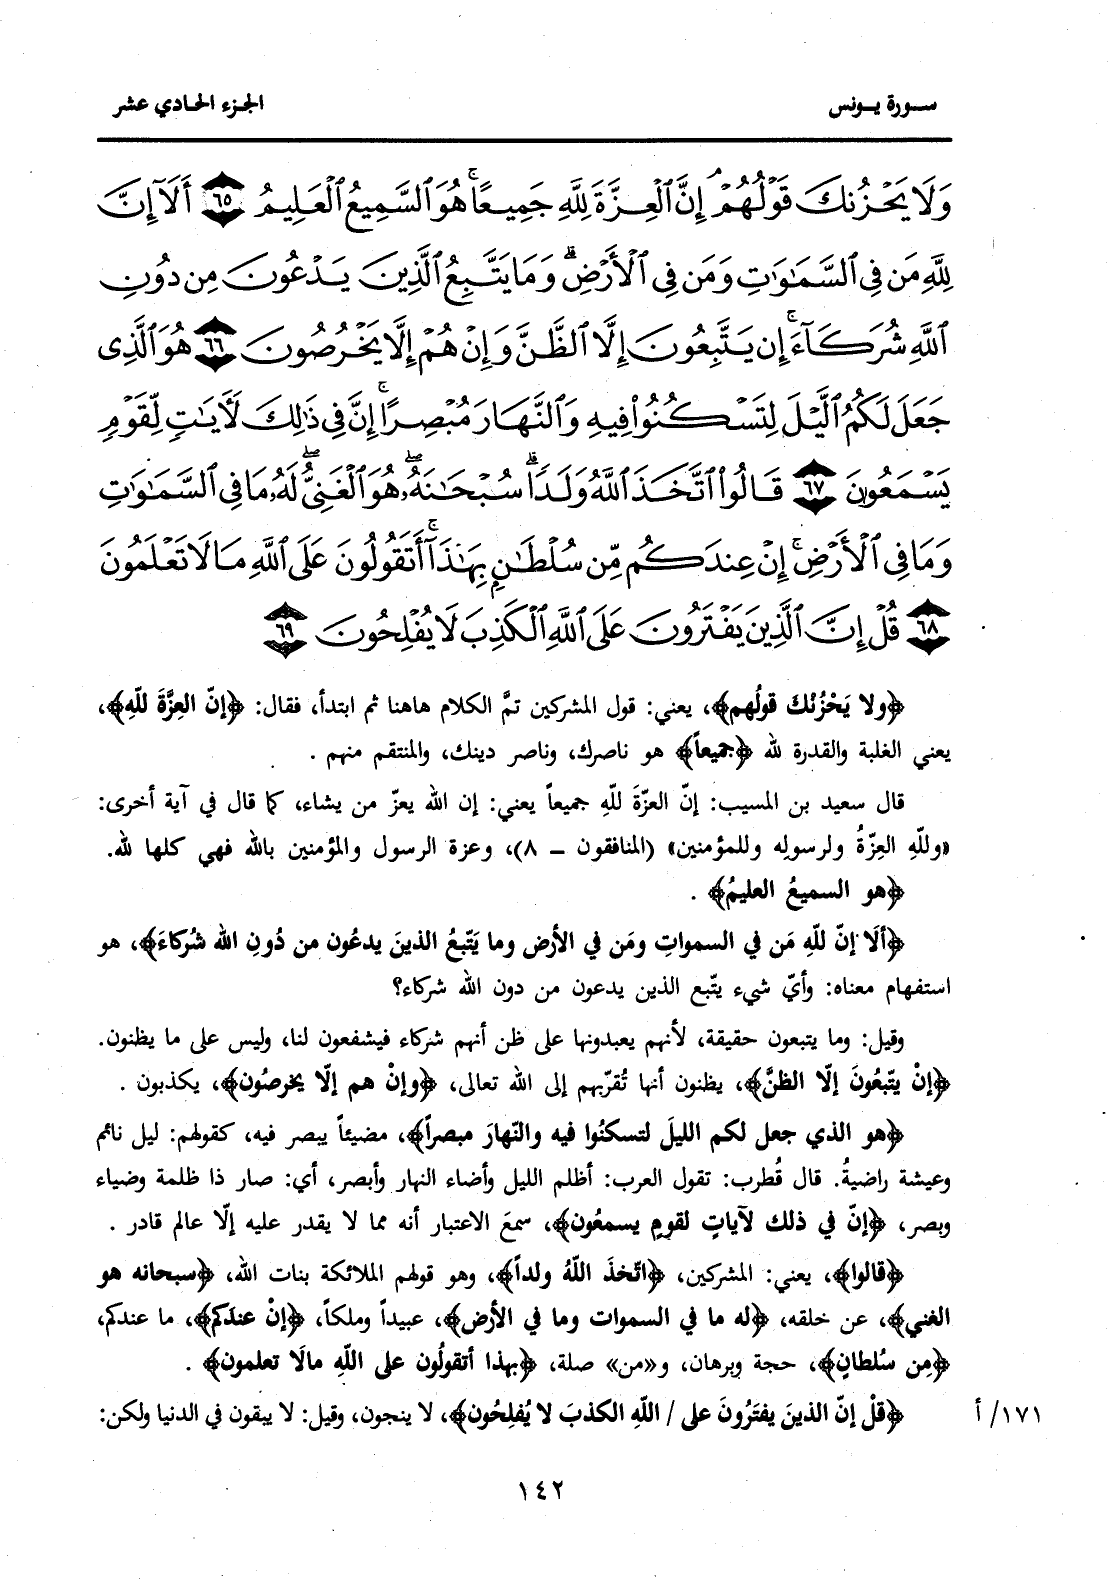 سورة يونس
الجزء الحادي عشر
وَلَا يَحْزُنكَ قَوْلُهُمْ ۘ إِنَّ ٱلْعِزَّةَ لِلَّهِ جَمِيعًا ۚ هُوَ ٱلسَّمِيعُ ٱلْعَلِيمُ ٦٥ أَلَآ إِنَّ
لِلَّهِ مَن فِى ٱلسَّمَٰوَٰتِ وَمَن فِى ٱلْأَرْضِ ۗ وَمَا يَتَّبِعُ ٱلَّذِينَ يَدْعُونَ مِن دُونِ
ٱللَّهِ شُرَكَآءَ ۚ إِن يَتَّبِعُونَ إِلَّا ٱلظَّنَّ وَإِنْ هُمْ إِلَّا يَخْرُصُونَ ٦٦ هُوَ ٱلَّذِى
جَعَلَ لَكُمُ ٱلَّيْلَ لِتَسْكُنُوا۟ فِيهِ وَٱلنَّهَارَ مُبْصِرًا ۚ إِنَّ فِى ذَٰلِكَ لَءَايَٰتٍ لِّقَوْمٍ
يَسْمَعُونَ ٦٧ قَالُوا۟ ٱتَّخَذَ ٱللَّهُ وَلَدًا ۗ سُبْحَٰنَهُۥ ۖ هُوَ ٱلْغَنِىُّ ۖ لَهُۥ مَا فِى ٱلسَّمَٰوَٰتِ
وَمَا فِى ٱلْأَرْضِ ۚ إِنْ عِندَكُم مِّن سُلْطَٰنٍۭ بِهَٰذَآ ۚ أَتَقُولُونَ عَلَى ٱللَّهِ مَا لَا تَعْلَمُونَ
٦٨ قُلْ إِنَّ ٱلَّذِينَ يَفْتَرُونَ عَلَى ٱللَّهِ ٱلْكَذِبَ لَا يُفْلِحُونَ ٦٩
﴿ولا يَحْزُنْكَ قولُهم﴾، يعني: قول المشركين تمَّ الكلام هاهنا ثم ابتدأ، فقال: ﴿إنّ العِزَّةَ للّهِ﴾،
يعني الغلبة والقدرة لله ﴿جميعاً﴾ هو ناصرك، وناصر دينك، والمنتقم منهم .
قال سعيد بن المسيب: إنّ العزّةَ للّهِ جميعاً يعني: إن الله يعزّ من يشاء، كما قال في آية أخرى:
«وللّهِ العِزّةُ ولرسولِه وللمؤمنين» (المنافقون ــ ٨)، وعزة الرسول والمؤمنين بالله فهي كلها لله.
﴿هو السميعُ العليمُ﴾ .
﴿ألَا إنّ للّهِ مَن في السمواتِ ومَن في الأرض وما يَتّبعُ الذينَ يدعُون من دُونِ الله شُركاءَ﴾، هو
استفهام معناه: وأيّ شيء يتّبع الذين يدعون من دون الله شركاء؟
وقيل: وما يتبعون حقيقة، لأنهم يعبدونها على ظن أنهم شركاء فيشفعون لنا، وليس على ما يظنون.
﴿إنْ يتّبعُونَ إلّا الظنَّ﴾، يظنون أنها تُقرّبهم إلى الله تعالى، ﴿وإنْ هم إلّا يخرصُون﴾، يكذبون .
﴿هو الذي جعل لكم الليلَ لتسكنُوا فيه والنّهارَ مبصراً﴾، مضيئاً يبصر فيه، كقولهم: ليل نائم
وعيشة راضيةُ. قال قُطرب: تقول العرب: أظلم الليل وأضاء النهار وأبصر، أي: صار ذا ظلمة وضياء
وبصر، ﴿إنّ في ذلك لآياتٍ لقومٍ يسمعُون﴾، سمعَ الاعتبار أنه مما لا يقدر عليه إلّا عالم قادر .
﴿قالوا﴾، يعني: المشركين، ﴿اتّخذَ اللّهُ ولداً﴾، وهو قولهم الملائكة بنات الله، ﴿سبحانه هو
الغني﴾، عن خلقه، ﴿له ما في السموات وما في الأرض﴾، عبيداً وملكاً، ﴿إنْ عندَكم﴾، ما عندكم،
﴿مِن سُلطانٍ﴾، حجة وبرهان، و«من» صلة، ﴿بهذا أتقولُون على اللّهِ مالَا تعلمون﴾ .
﴿قلْ إنّ الذينَ يفتَرُونَ على / اللّهِ الكذبَ لا يُفلِحُون﴾، لا ينجون، وقيل: لا يبقون في الدنيا ولكن:
١٧١/ أ
١٤٢